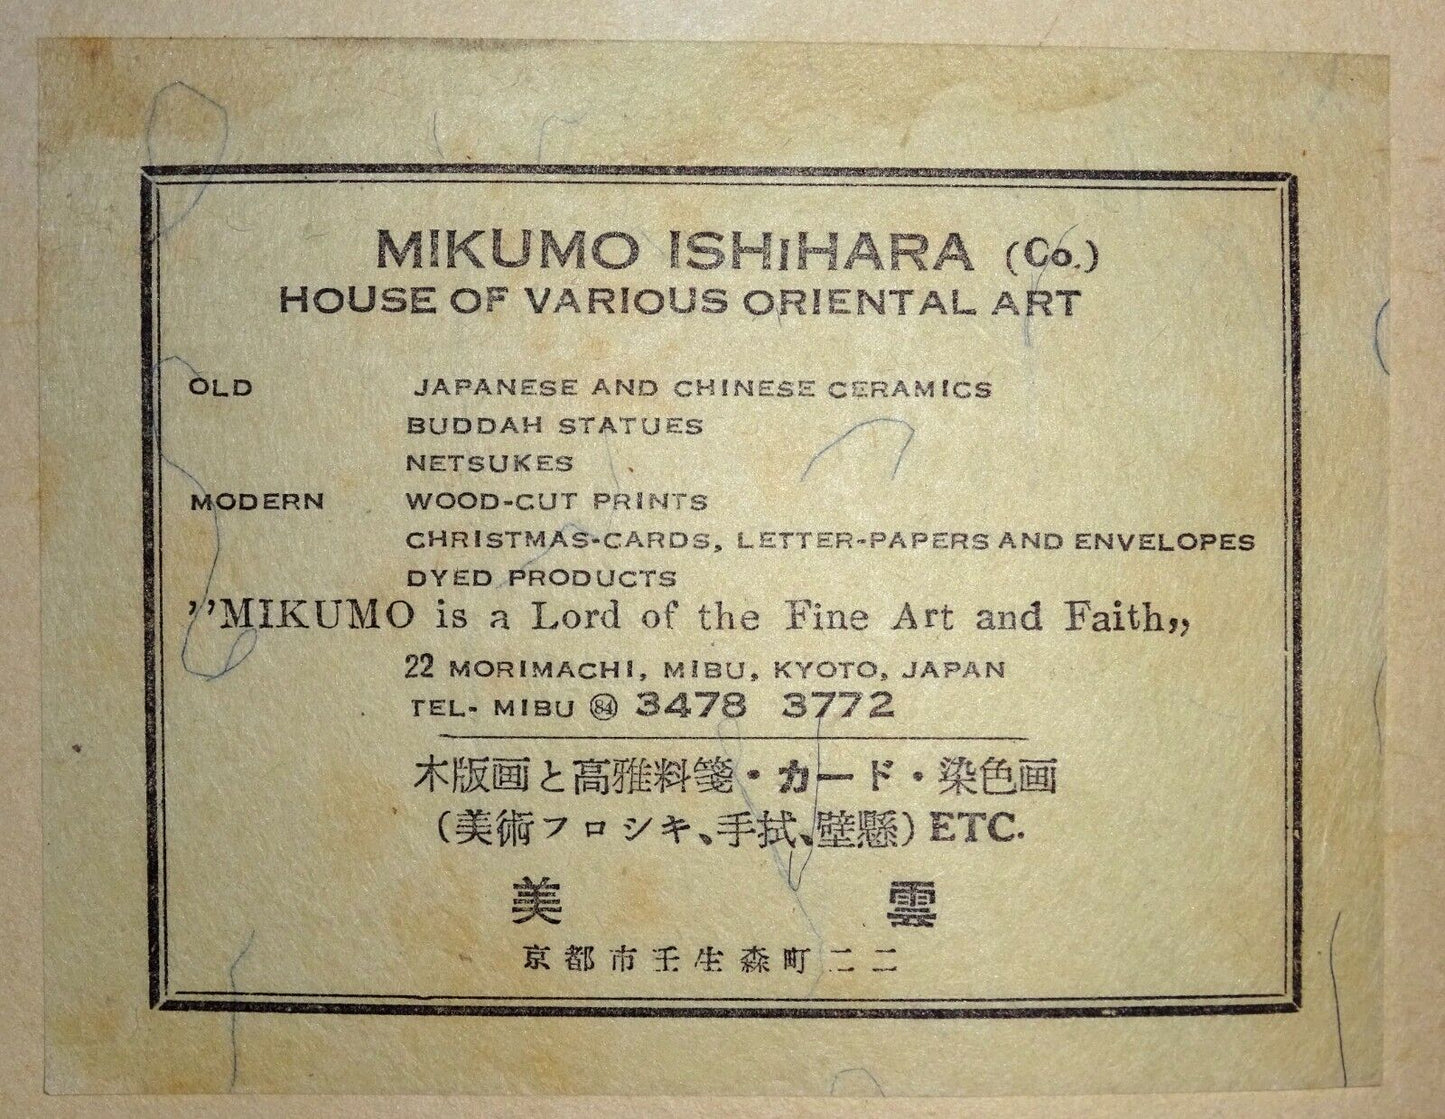 MIKUMO ISHIHARA (Co.)
HOUSE OF VARIOUS ORIENTAL ART
OLD JAPANESE AND CHINESE CERAMICS
BUDDAH STATUES
NETSUKES
MODERN WOOD-CUT PRINTS
CHRISTMAS-CARDS, LETTER-PAPERS AND ENVELOPES
DYED PRODUCTS
’’MIKUMO is a Lord of the Fine Art and Faith„
22 MORIMACHI, MIBU, KYOTO, JAPAN
TEL- MIBU (84) 3478 3772
木版画と高雅料箋・カード・染色画
(美術フロシキ、手拭、壁懸) ETC.
美雲
京都市壬生森町二二